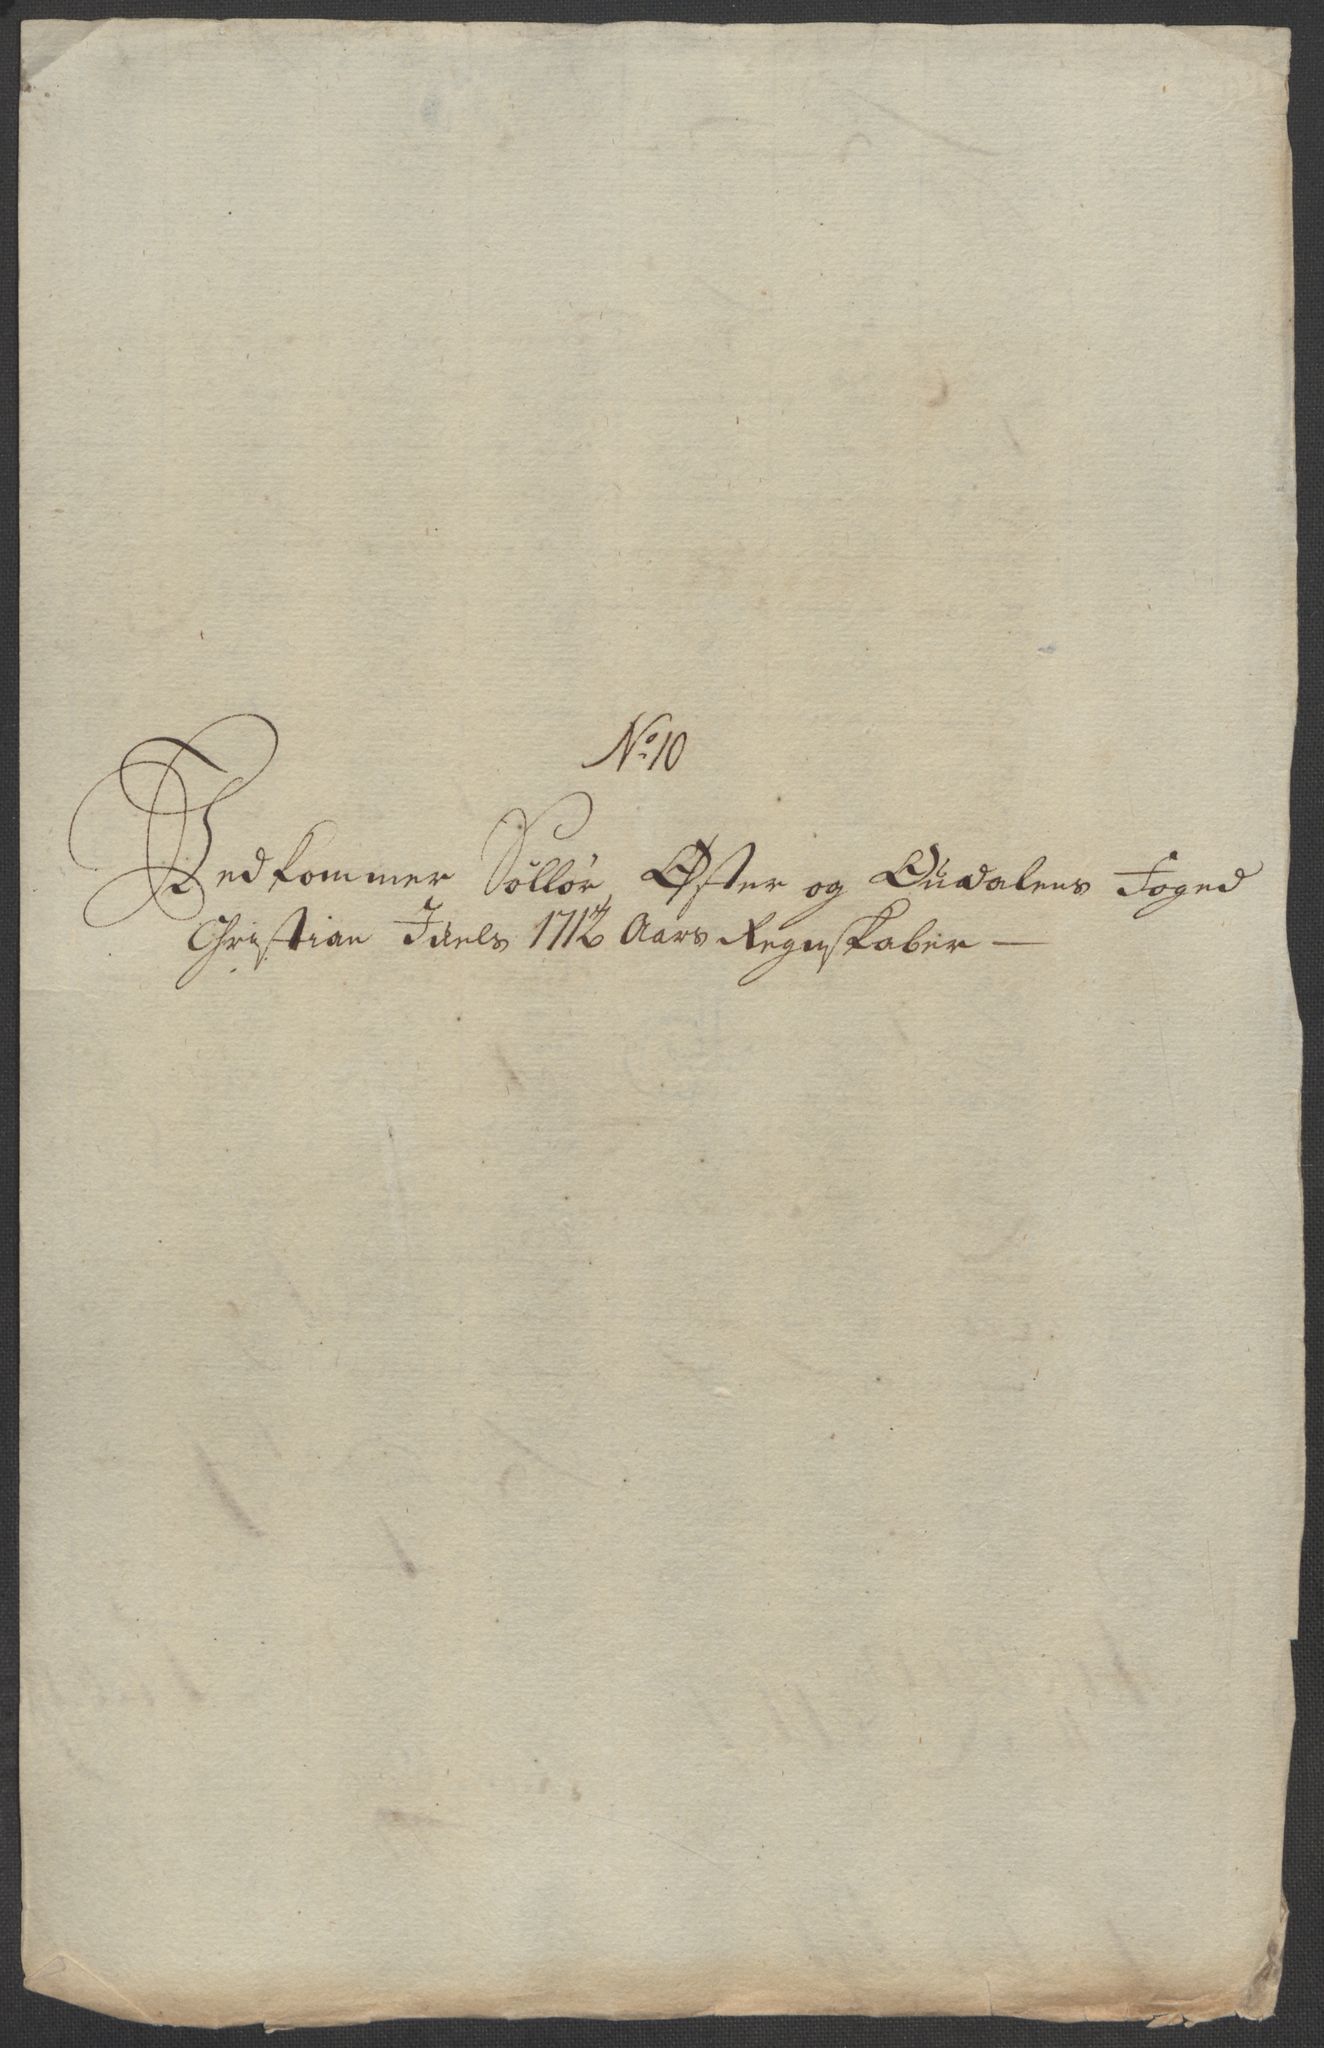 No: 10
Vedkommer Sollør, Øster og Oudalens Foged
Christian Idels 1712 Aars Regnskaber —